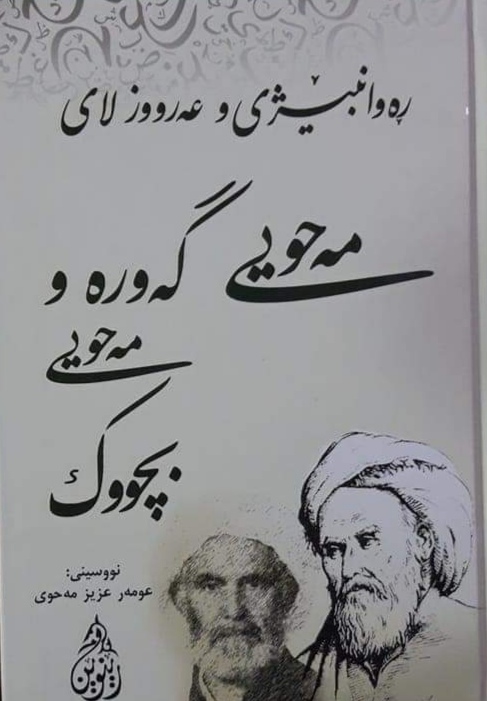 ڕەوانبێژی و عەرووز لای
مەحویی گەورە و
مەحویی
بچووک
نووسینی:
عومەر عزیز مەحوی